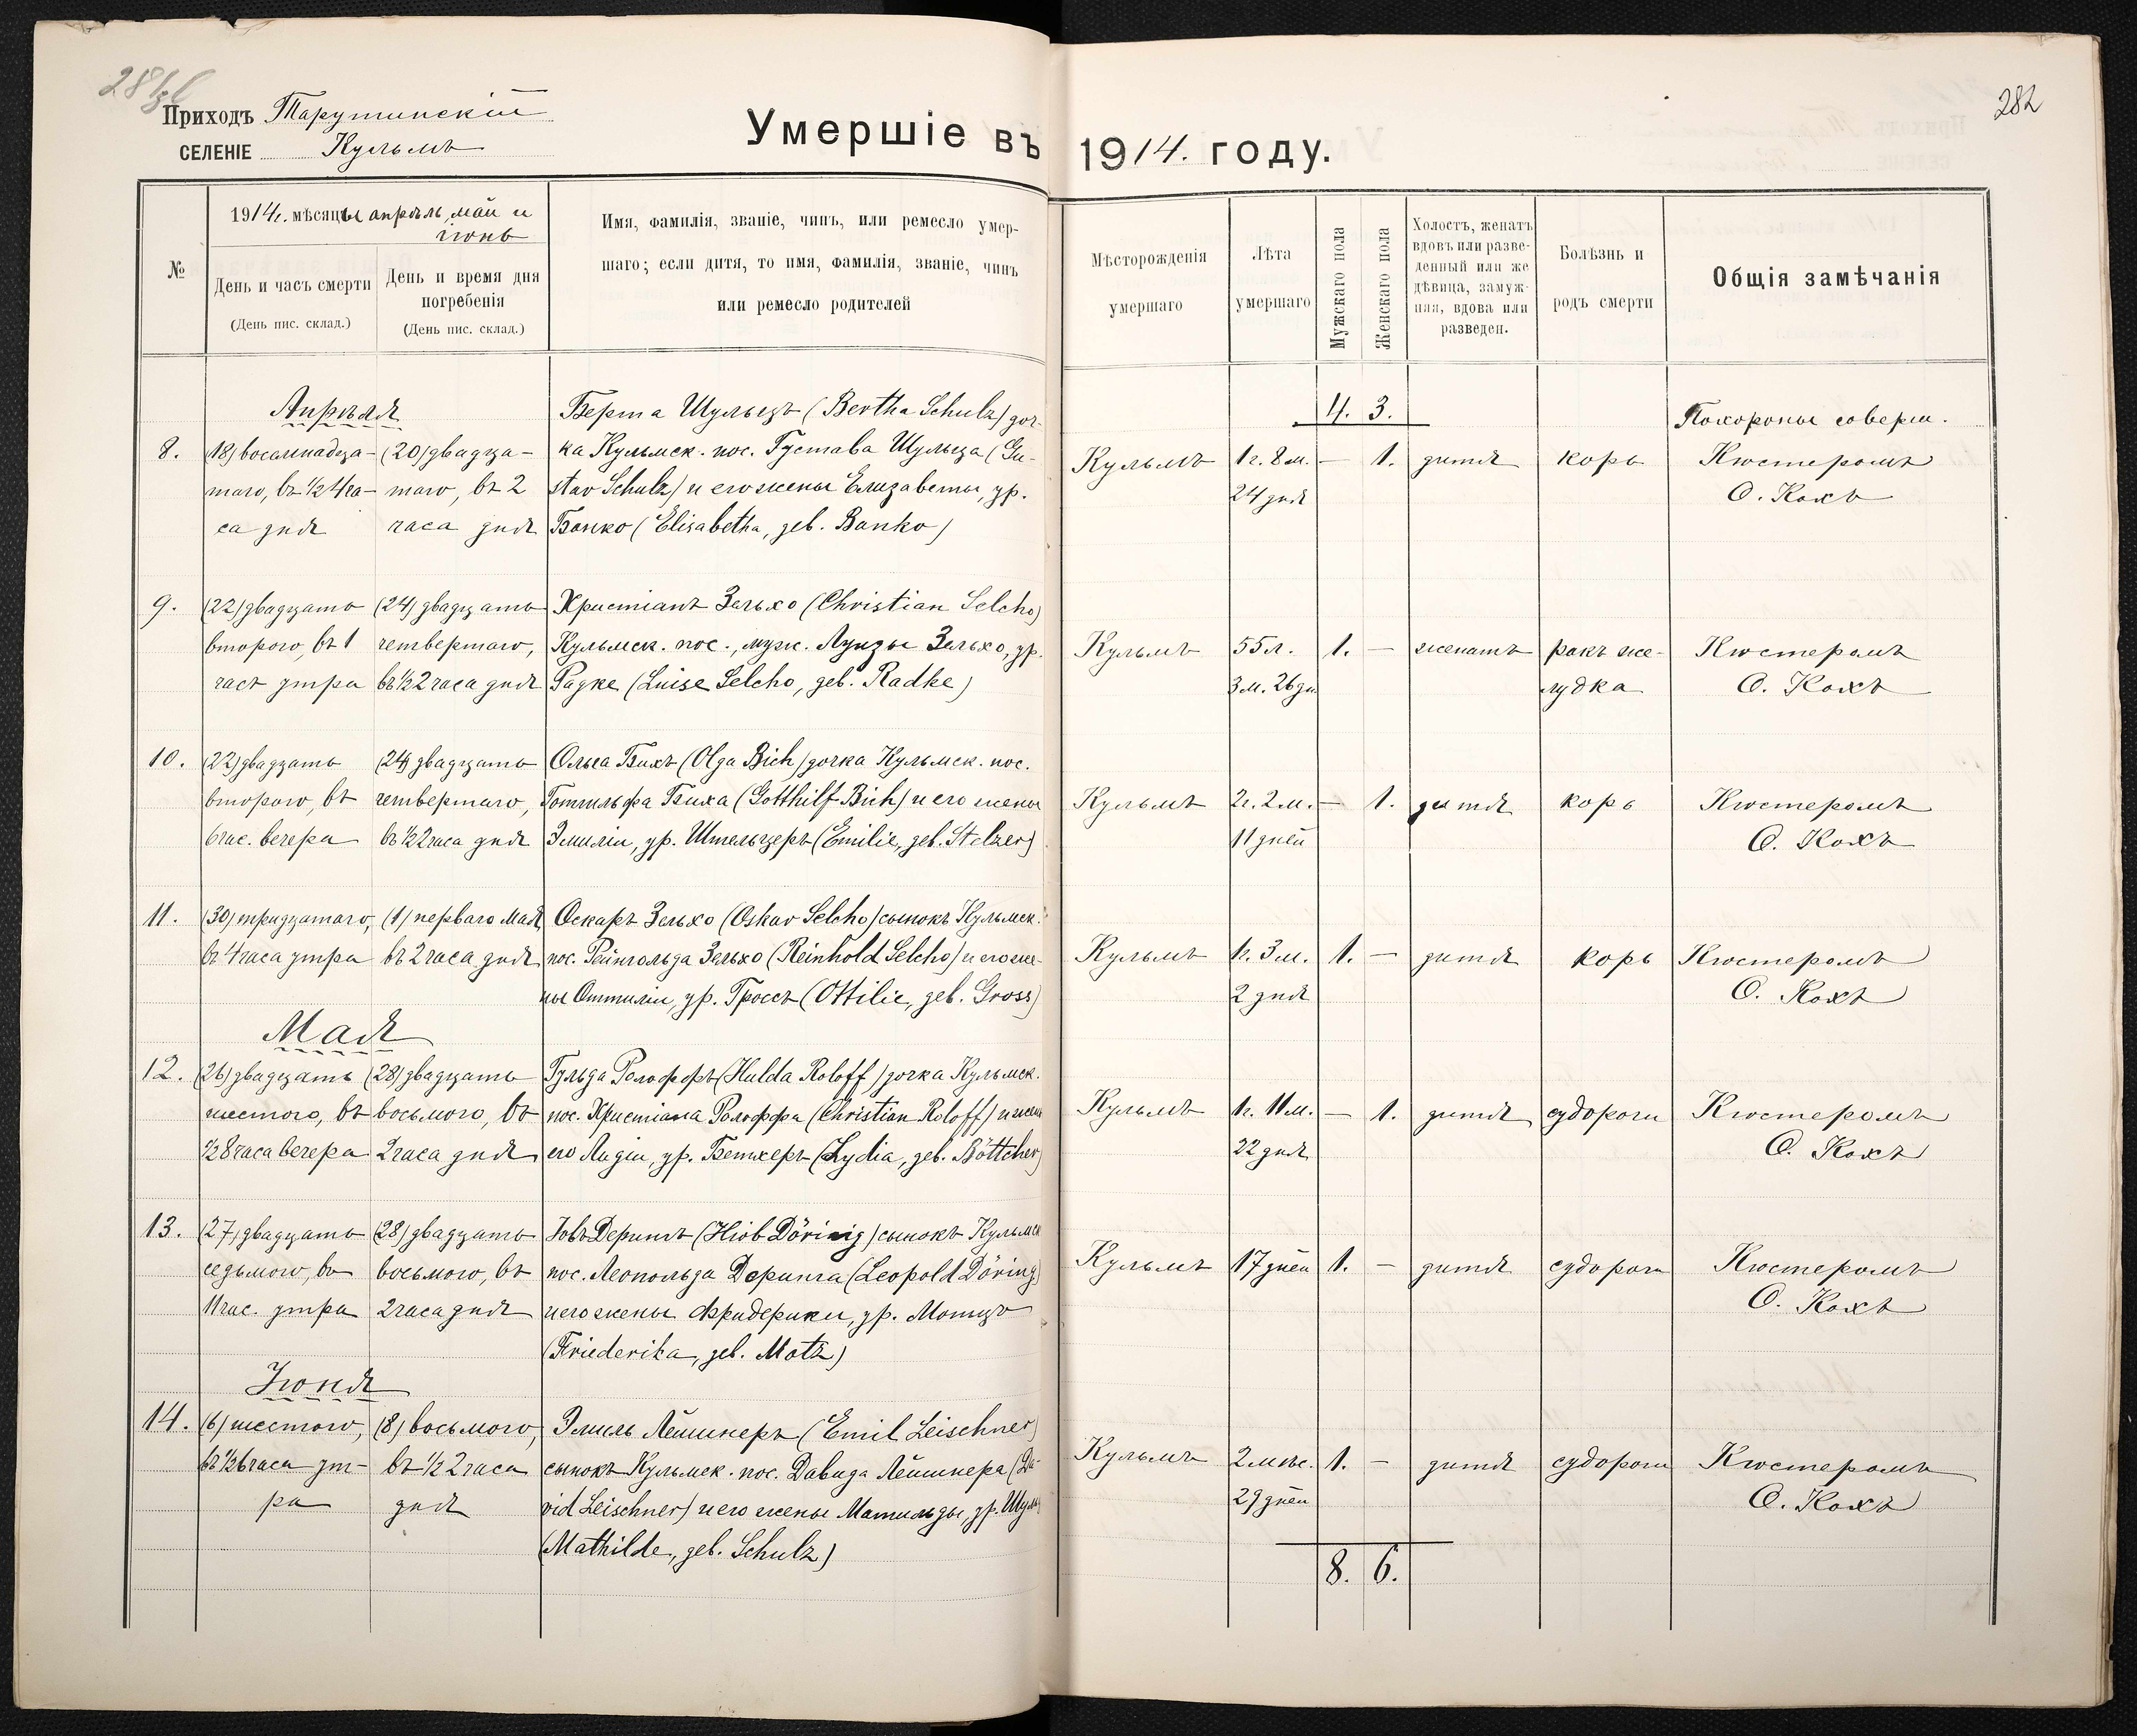 282
Приходъ Тарутинскій
СЕЛЕНІЕ Кульмъ
Умершіе въ 1914. году.
№
1914 г. мѣсяцы апрѣль, май и
іюнь
День и часъ смерти
(День пис. склад.)
День и время дня
погребенія
(День пис. склад.)
Имя, фамилія, званіе, чинъ, или ремесло умер-
шаго; если дитя, то имя, фамилія, званіе, чинъ
или ремесло родителей
Мѣсторожденія
умершаго
Лѣта
умершаго
Мужскаго пола
Женскаго пола
Холостъ, женатъ
вдовъ или разве-
денный или же
дѣвица, замуж-
няя, вдова или
разведен.
Болѣзнь и
родъ смерти
Общія замѣчанія
4. 3.
Похороны соверш.
Апрѣля
8.
(18) восемнадца-
таго, въ ½ 4 ча-
са дня
(20) двадца-
таго, въ 2
часа дня
Берта Шульцъ (Bertha Schulz) доч-
ка Кульмск. пос. Густава Шульца (Gu-
stav Schulz) и его жены Елизаветы, ур.
Банко (Elisabetha, geb. Banko)
Кульмъ
1 г. 8 м.
24 дня
— 1.
дитя
корь
Кюстеромъ
О. Кохъ
9.
(22) двадцать
второго, въ 1
часъ утра
(24) двадцать
четвертаго,
въ ½ 2 часа дня
Христіанъ Зельхо (Christian Selcho)
Кульмск. пос., муж. Луизы Зельхо, ур.
Радке (Luise Selcho, geb. Radke)
Кульмъ
55 л.
3 м. 26 дн.
1. —
женатъ
ракъ же-
лудка
Кюстеромъ
О. Кохъ
10.
(22) двадцать
второго, въ
6 час. вечера
(24) двадцать
четвертаго,
въ ½ 2 часа дня
Ольга Бихъ (Olga Bich) дочка Кульмск. пос.
Готтильфа Биха (Gotthilf Bich) и его жены
Эмиліи, ур. Штельцеръ (Emilie, geb. Stelzer)
Кульмъ
2 г. 2 м.
11 дней
— 1.
дитя
корь
Кюстеромъ
О. Кохъ
11.
(30) тридцатаго,
въ 4 часа утра
(1) перваго Мая
въ 2 часа дня
Оскаръ Зельхо (Oskar Selcho) сынокъ Кульмск.
пос. Рейнгольда Зельхо (Reinhold Selcho) и его же-
ны Оттиліи, ур. Гроссъ (Ottilie, geb. Gross)
Кульмъ
1 г. 3 м.
2 дня
1. —
дитя
корь
Кюстеромъ
О. Кохъ
Мая
12.
(26) двадцать
шестого, въ
½ 8 часа вечера
(28) двадцать
восьмого, въ
2 часа дня
Гульда Ролоффъ (Hulda Roloff) дочка Кульмск.
пос. Христіана Ролоффа (Christian Roloff) и жены
его Лидіи, ур. Бетхеръ (Lydia, geb. Böttcher)
Кульмъ
1 г. 11 м.
22 дня
— 1.
дитя
судороги
Кюстеромъ
О. Кохъ
13.
(27) двадцать
седьмого, въ
11 час. утра
(28) двадцать
восьмого, въ
2 часа дня
Іовъ Дерингъ (Hiob Döring) сынокъ Кульмск
пос. Леопольда Деринга (Leopold Döring)
и его жены Фридерики, ур. Мотцъ
(Friederika, geb. Motz)
Кульмъ
17 дней
1. —
дитя
судороги
Кюстеромъ
О. Кохъ
Іюня
14.
(6) шестого,
въ ½ 6 часа ут-
ра
(8) восьмого,
въ ½ 2 часа
дня
Эмиль Лейшнеръ (Emil Leischner)
сынокъ Кульмск. пос. Давида Лейшнера (Da-
vid Leischner) и его жены Матильды, ур. Шульц
(Mathilde, geb. Schulz)
Кульмъ
2 мѣс.
29 дней
1. —
дитя
судороги
Кюстеромъ
О. Кохъ
8. 6.